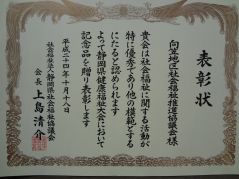 表彰状
向笠地区社会福祉推進協議会様
貴会は社会福祉に関する活動が
特に優秀であり他の模範とする
にたると認められます
よって静岡県健康福祉大会において
記念品を贈り表彰します
平成二十四年十月十八日
社会福祉法人静岡県社会福祉協議会
会長 上島清介